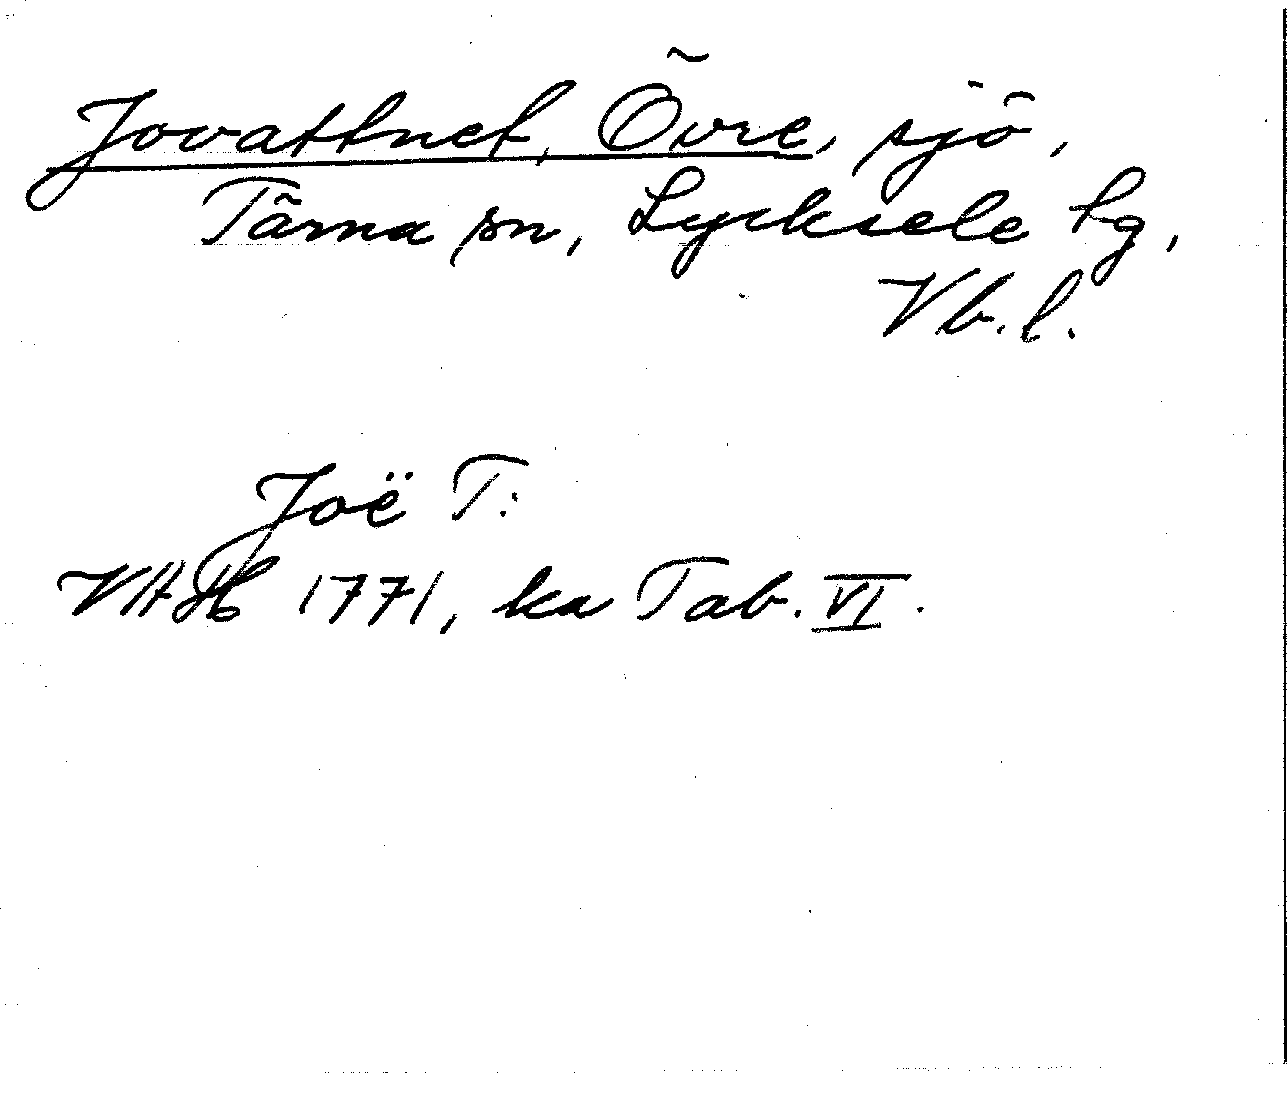 Jovattnet, Övre, sjö,
Tärna sn, Lycksele lg,
Vb.l.
Joë T:
VAH 1771, ka Tab. VI.